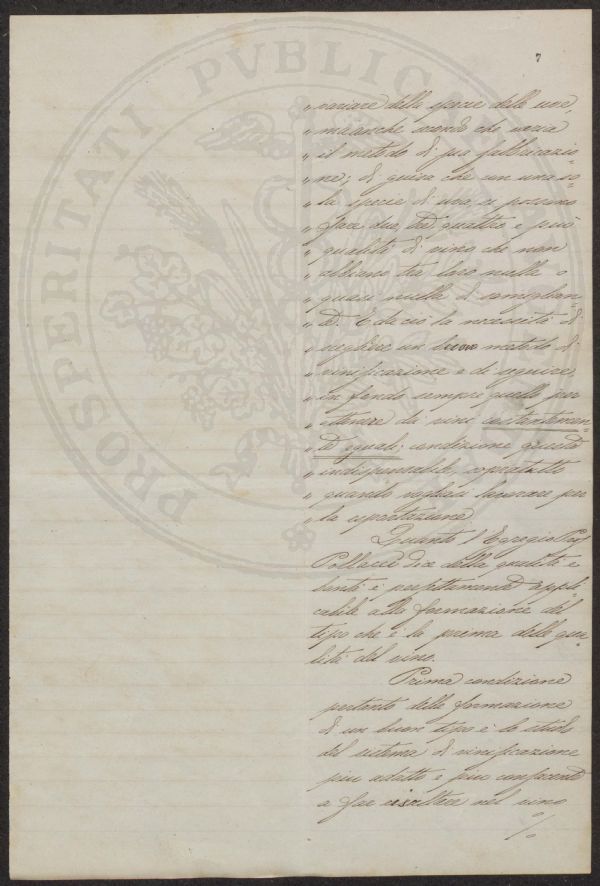 7
„ variare delle specie delle uve,
„ ma anche secondo che varia
„ il metodo di sua fabbricazio=
„ ne; di guisa che con una so=
„ la specie di uva, si possono
„ fare due, tre, quattro e più
„ qualità di vino che non
„ abbiano tra loro nulla o
„ quasi nulla di somiglian=
„ te. E da ciò la necessità di
„ scegliere un buon metodo di
„ vinificazione e di seguire
„ in fondo sempre quello per
„ ottenere da vini costantemen=
„ te eguali, condizione questa
„ indispensabile, sopratutto
„ quando vogliasi lavorare per
„ la esportazione
Quanto l'Egregio Prof
Pollacci dice della qualità e
bontà è perfettamente appli=
cabile alla formazione del
tipo che è la prima delle qua=
lità del vino.
Prima condizione
pertanto della formazione
di un buon tipo è lo studio
del sistema di vinificazione
più adatto e più conferente
a far risaltare nel vino
./.
PROSPERITATI PVBLICAE